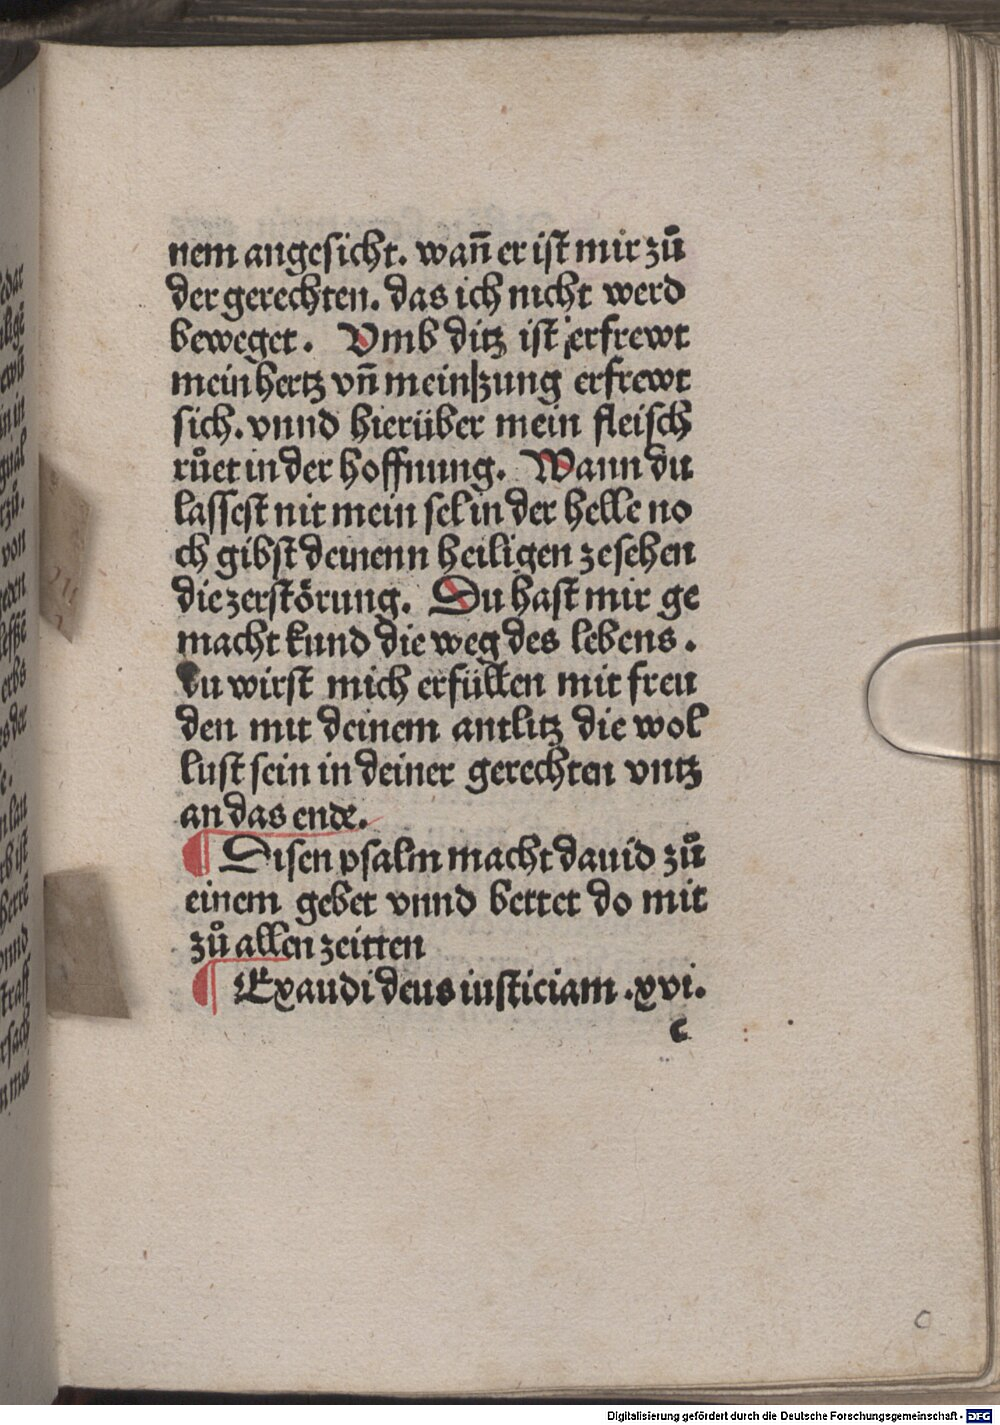 nem angesicht. wann̄ er ist mir zů
der gerechten. das ich nicht werd
beweget. Vmb ditz ist erfrewt
mein hertz vn̄ mein zung erfrewt
sich. vnnd hierüber mein fleisch
růet in der hoffnung. Wann du
lassest nit mein sel in der helle no
ch gibst deinenn heiligen zesehen
die zerstörung. Du hast mir ge
macht kund die weg des lebens.
du wirst mich erfüllen mit freu
den mit deinem antlitz die wol
lust sein in deiner gerechten vntz
an das ende.
¶ Disen psalm macht dauid zů
einem gebet vnnd bettet do mit
zů allen zeitten
¶ Exaudi deus iusticiam .xvi.
c
Digitalisierung gefördert durch die Deutsche Forschungsgemeinschaft - DFG